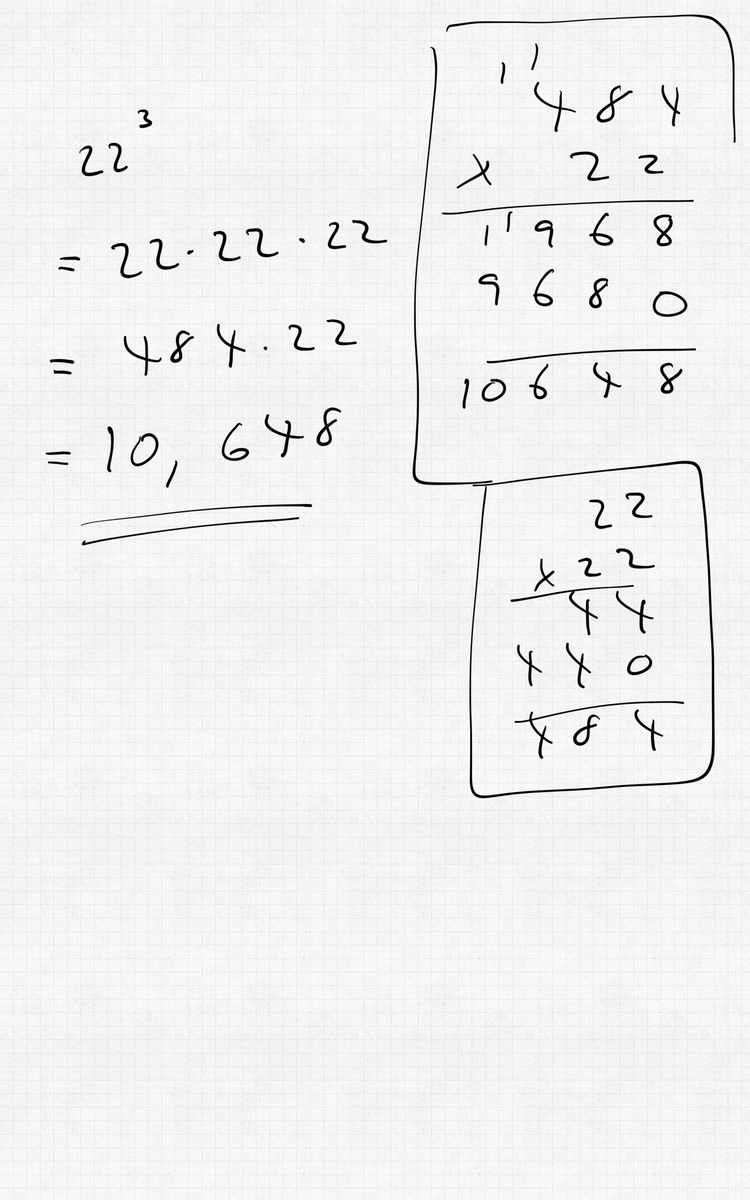 22³
= 22·22·22
= 484·22
= 10,648
1 1
484
x 22
1 1 968
9680
10648
22
x 22
44
440
484